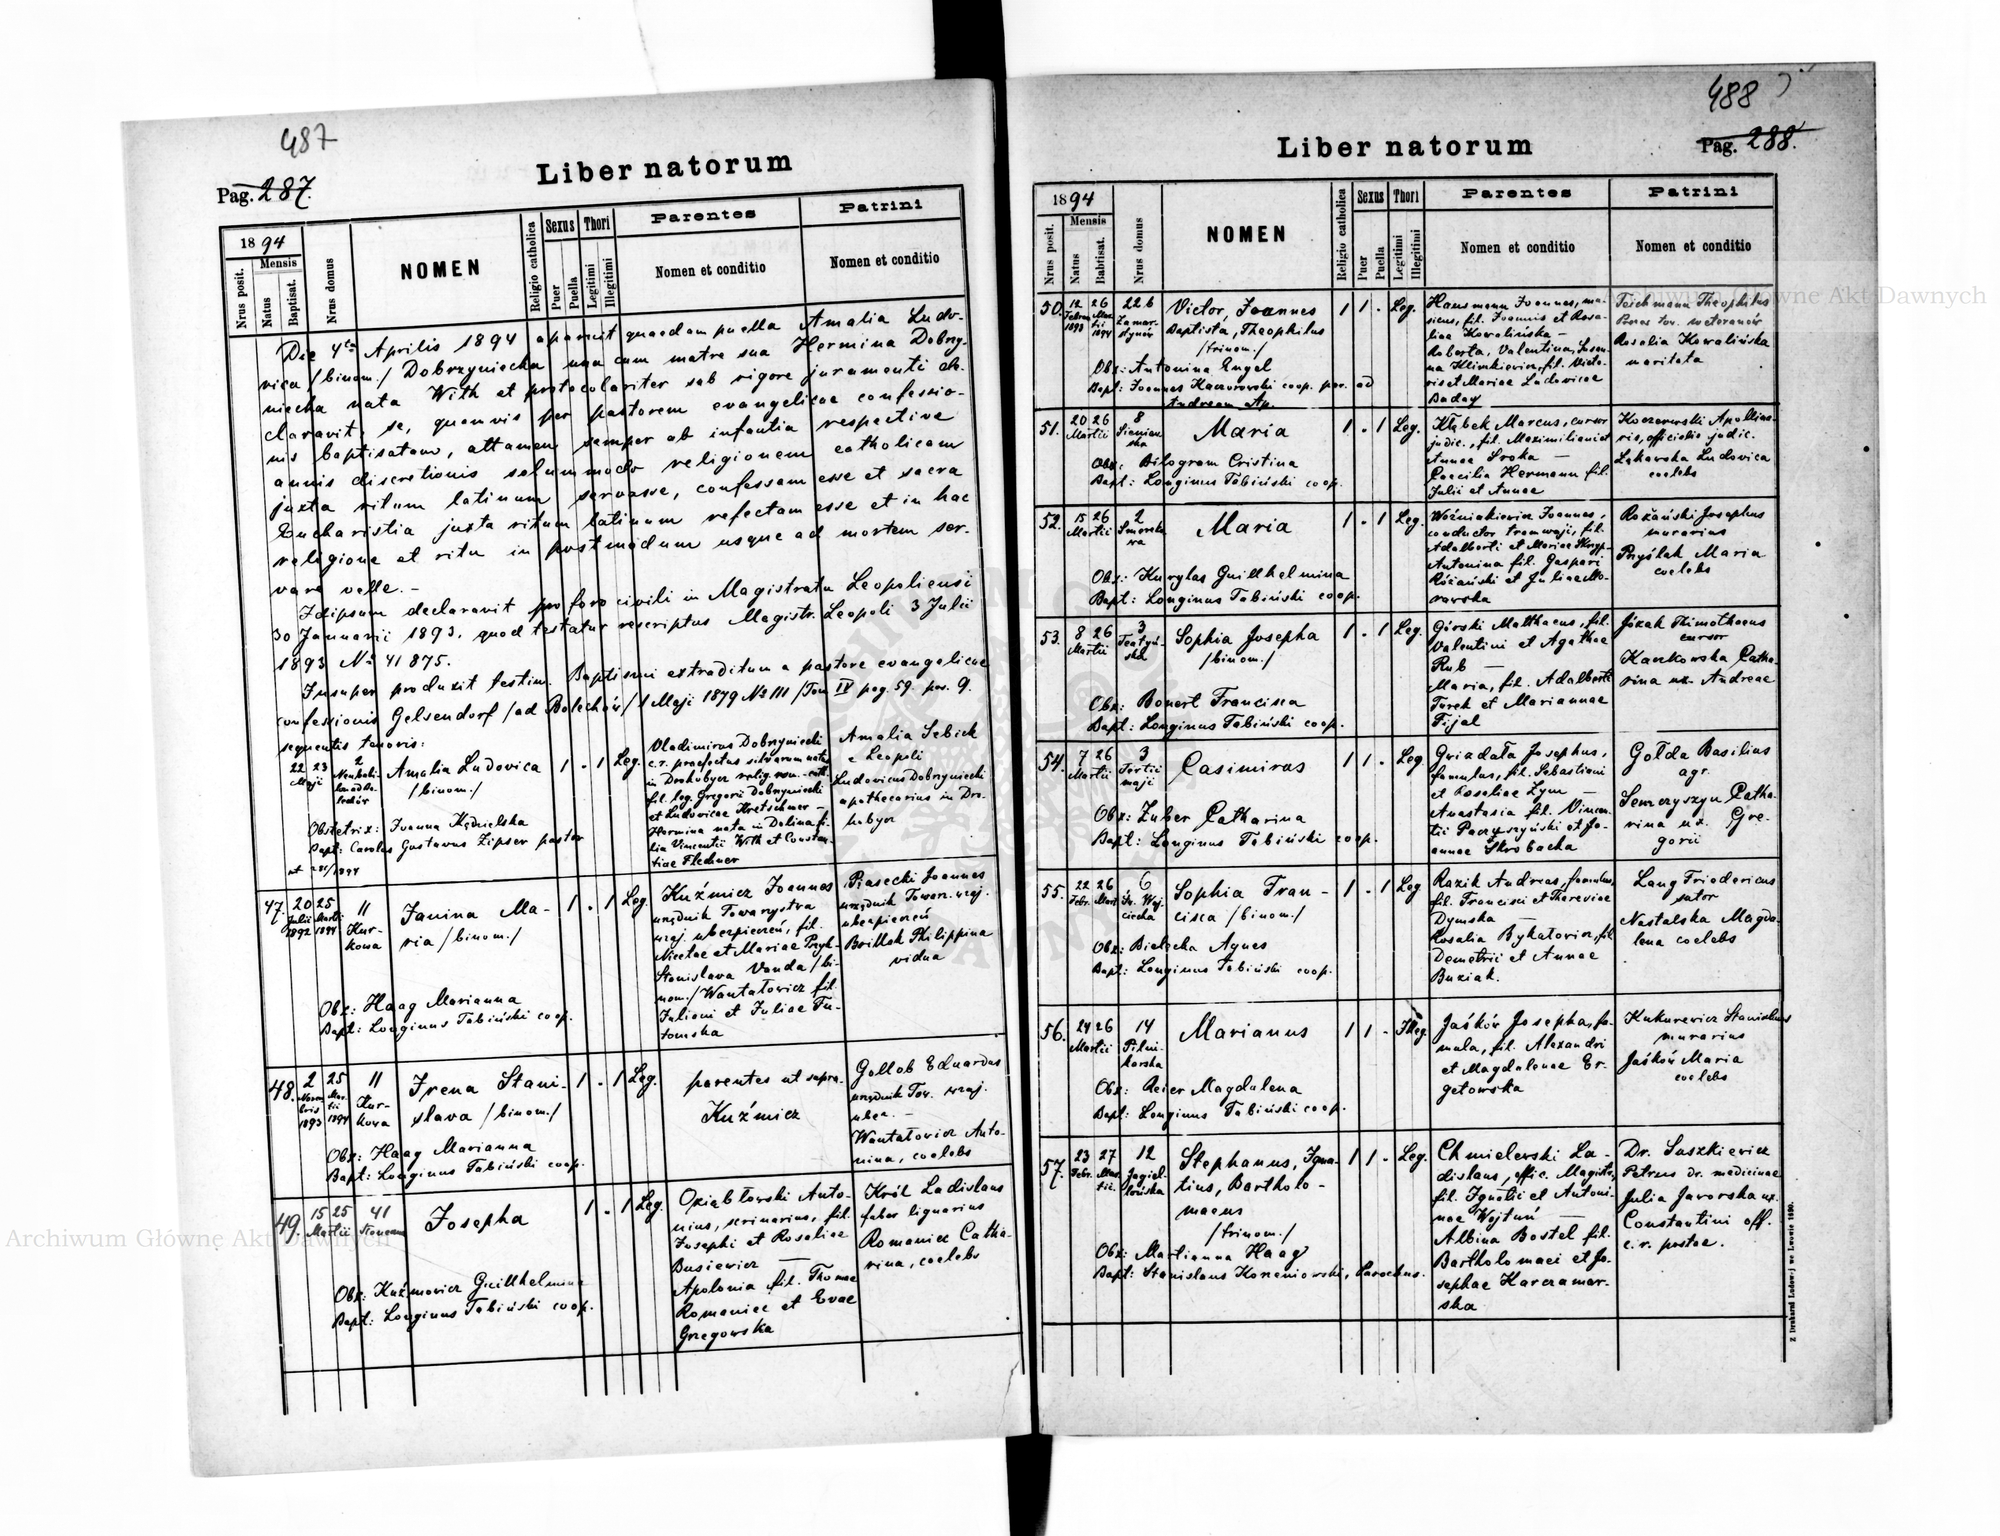 487
Liber natorum
Pag. 287.
1894
Mensis
Nrus posit.
Natus
Baptisat.
Nrus domus
NOMEN
Religio catholica
Sexus
Puer
Puella
Thori
Legitimi
Illegitimi
Parentes
Nomen et conditio
Patrini
Nomen et conditio
Die 4ta Aprilis 1894 aparuit quaedam puella Amalia Ludo-
vica /binom./ Dobrzyniecka una cum matre sua Hermina Dobrzy-
niecka nata With et protocolariter sub rigore juramenti de-
claravit, se, quamvis per pastorem evangelicae confessio-
nis baptisatam, attamen semper ab infantia respective
annis discretionis solummodo religionem catholicam
juxta ritum latinum servasse, confessam esse et sacra
Eucharistia juxta ritum latinum refectam esse et in hac
religione et ritu in postmodum usque ad mortem ser-
vare velle. -
Idipsum declaravit pro foro civili in Magistratu Leopoliensi
30 Januarii 1893. quod testatur rescriptus Magistr. Leopoli 3 Julii
1893 No 41875.
Insuper produxit testim. Baptismi extraditum a pastore evangelicae
confessionis Gelsendorf /ad Bolechów/ 1 Maji 1879 No 111 /Tom IV pag. 59. pos. 9.
sequentis tenoris:
22 23
Maji
2
Amalia Ludovica
/binom./
1 . 1 Leg.
Vladimirus Dobrzyniecki
c.r. praefectus silvarum natus
in Drohobycz relig. rom. cath.
fil. leg. Gregorii Dobrzyniecki
et Ludovicae Kretschmer -
Hermina nata in Dolina fi-
lia Vincentii With et Constan-
tiae Flechner
Amalia Sebick
e Leopoli
Ludovicus Dobrzyniecki
apothecarius in Dro-
hobycz
Obstetrix: Joanna Kędzielska
Bapt: Carolus Gustavus Zipser pastor
47.
20 25
Julii Martii
1892 1894
11
Kur-
kowa
Janina Ma-
ria /binom./
1 . 1 Leg.
Kuźmicz Joannes
urzędnik Towarzystwa
wzaj. ubezpieczeń, fil.
Nicetae et Mariae Przyk-
Stanislava Vanda /bi-
nom./ Wantałowicz fil.
Juliani et Juliae Tu-
tomska
Piasecki Joannes
urzędnik Towarz. wzaj.
ubezpieczeń
Brillak Philippina
vidua
Obx: Haag Marianna
Bapt: Longinus Tabiński coop.
48.
2 25
Novem Mar-
bris tii
1893 1894
11
Kur-
kowa
Irena Stani-
slava /binom./
1 . 1 Leg.
parentes ut supra
Kuźmicz
Gollob Eduardus
urzędnik Tow. wzaj.
ubez. -
Wantałowicz Anto-
nina, coelebs
Obx: Haag Marianna
Bapt: Longinus Tabiński coop.
49.
15 25
Martii
41
Josepha
1 . 1 Leg.
Oziębłowski Anto-
nius, scrinarius, fil.
Josephi et Rosaliae
Busiewicz -
Apolonia fil. Thomae
Romaniec et Evae
Grzegowska
Król Ladislaus
faber lignarius
Romaniec Catha-
rina, coelebs
Obx: Kuźmowicz Guilhelmina
Bapt: Longinus Tabiński coop.
488
Liber natorum
Pag. 288.
1894
Mensis
Nrus posit.
Natus
Babtisat.
Nrus domus
NOMEN
Religio catholica
Sexus
Puer
Puella
Thori
Legitimi
Illegitimi
Parentes
Nomen et conditio
Patrini
Nomen et conditio
50.
12 26
Februar Mar-
1893 tii 1894
226
Zamar-
stynów
Victor, Joannes
Baptista, Theophilus
/trinom./
1 1 . Leg.
Hausmann Joannes, mu-
sicus, fil. Joannis et Rosa-
liae Kowalińska -
Roberta, Valentina, Susan-
na Klimkiewicz, fil. Victo-
ris et Mariae Ludovicae
Baday
Teschmann Theophilus
Prezes tow. weteranów
Rosalia Kowalińska
maritata
Obx: Antonina Engel
Bapt: Joannes Kaczorowski coop. par. ad
Andream Ap.
51.
20 26
Martii
8
Sieniaw-
ska
Maria
1 . 1 Leg.
Kłąbek Marcus, cursor
judic., fil. Maximiliani et
Annae Sroka -
Caecilia Hermann fil.
Julii et Annae
Koczerowski Apollina-
ris, officialis judic.
Łukawska Ludovica
coelebs
Obx: Bilogram Cristina
Bapt: Longinus Tabiński coop.
52.
15 26
Martii
2
Maria
1 . 1 Leg.
Woźniakiewicz Joannes,
conductor tramwaji, fil.
Adalberti et Mariae Skrzyp-
Antonina fil. Gaspari
Różański et Juliae Mo-
rawska
Rożański Josephus
murarius
Przyślak Maria
coelebs
Obx: Kurylas Guilhelmina
Bapt: Longinus Tabiński coop.
53.
8 26
Martii
3
Teatyń-
ska
Sophia Josepha
/binom./
1 . 1 Leg.
Górski Matthaeus, fil.
Valentini et Agathae
Rub -
Maria, fil. Adalberti
Turek et Mariannae
Fijal
Józak Thimothaeus
cursor
Kaczkowska Catha-
rina ux. Andreae
Obx: Bonert Francisca
Bapt: Longinus Tabiński coop.
54.
7 26
Martii
3
Tertii
maji
Casimirus
1 1 . Leg.
Gwiadała Josephus,
famulus, fil. Sebastiani
et Rosaliae Zym -
Anastasia fil. Vincen-
tii Paczyszyński et Jo-
annae Skrobacka
Gołda Basilius
agr.
Semczyszyn Catha-
rina ux. Gre-
gorii
Obx: Zuber Catharina
Bapt: Longinus Tabiński coop.
55.
22 26
Febr. Mart.
6
Św. Woj-
ciecha
Sophia Fran-
cisca /binom./
1 . 1 Leg
Razik Andreas, famulus,
fil. Francisci et Theresiae
Dymska -
Rosalia Bykatowicz, fil
Demetrii et Annae
Buziak.
Lang Friedericus
sutor
Nastalska Magda-
lena coelebs
Obx: Bielecka Agnes
Bapt: Longinus Tabiński coop.
56.
24 26
Martii
14
Pilni-
karska
Marianus
1 1 . Illeg.
Jaśków Josepha, fa-
mula, fil. Alexandri
et Magdalenae Er-
getowska
Kukurewicz Stanislaus
murarius
Jaśków Maria
coelebs
Obx: Reier Magdalena
Bapt: Longinus Tabiński coop.
57.
23 27
Febr. Mar-
tii.
12
Jagiel-
lońska
Stephanus, Igna-
tius, Bartholo-
maeus
/trinom./
1 1 . Leg.
Chmielewski La-
dislaus, offic. Magistr.,
fil. Ignatii et Antoni-
nae Wojtuń -
Albina Bostel fil.
Bartholomaei et Jo-
sephae Karczamar-
ska
Dr. Saszkiewicz
Petrus dr. medicinae
Julia Jaworska ux.
Constantini off.
c.r. postae.
Obx: Martianna Haag
Bapt: Stanislaus Korzeniowski, Parochus.
Z Drukarni Ludowej we Lwowie 1890.
Archiwum Główne Akt Dawnych
Archiwum Główne Akt Dawnych